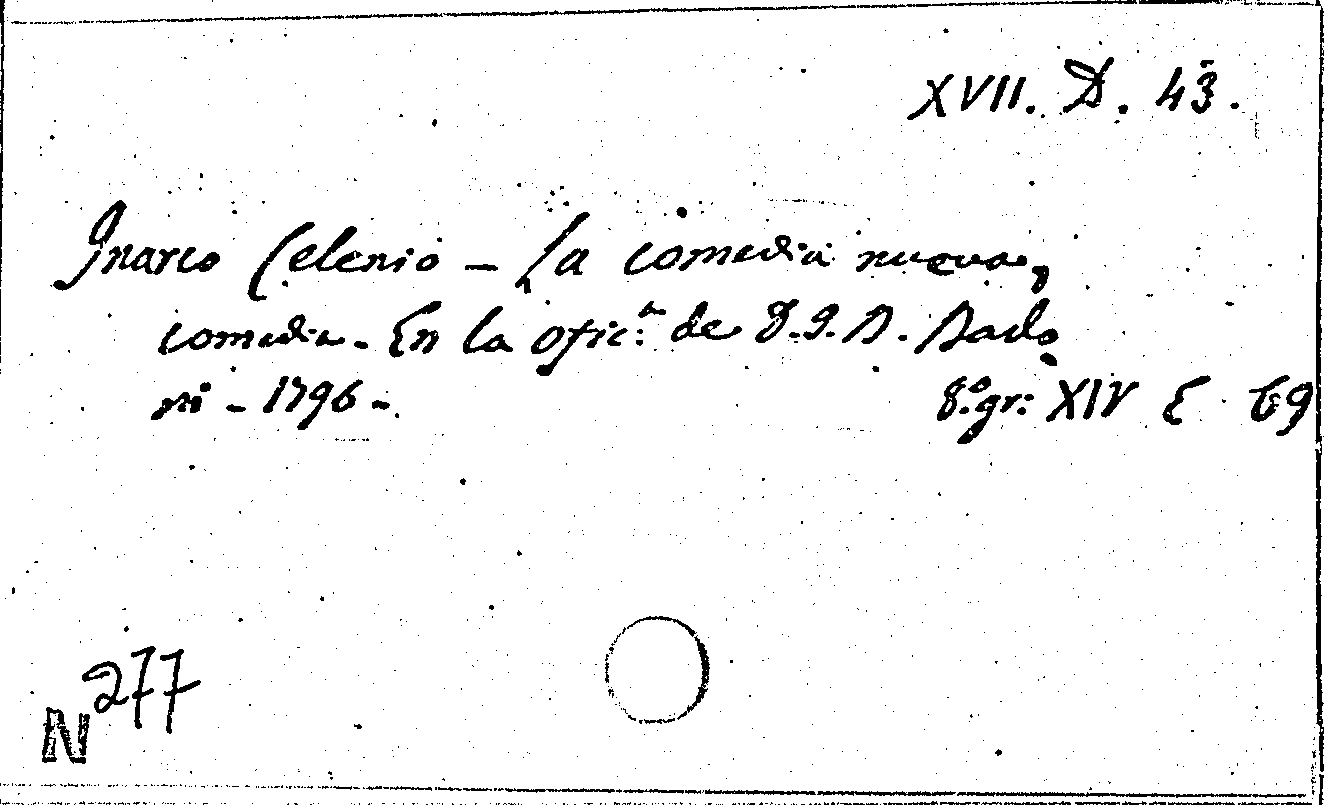 XVII. D. 43.
Inarco Celenio - La comedia nueva,
comedia. En la ofic.ⁿ de D.J.B. Bodo
ni - 1796 -. 8.º gr: XIV E 69
N 277